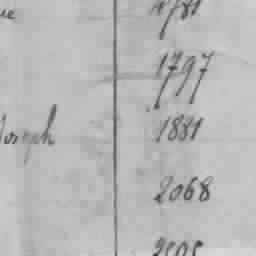 1781
1797
Joseph 1881
2068